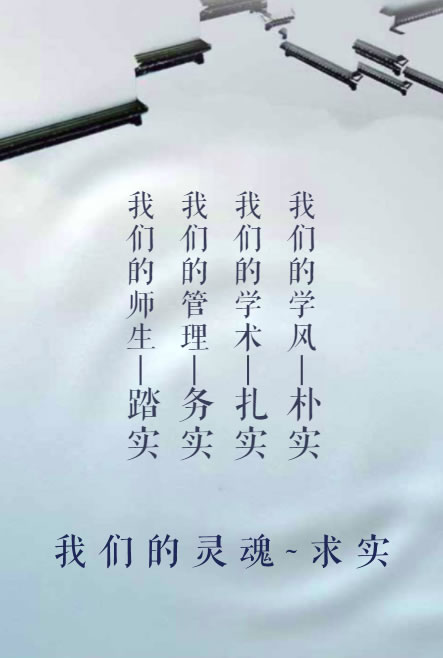 我们的学风—朴实
我们的学术—扎实
我们的管理—务实
我们的师生—踏实
我们的灵魂~求实